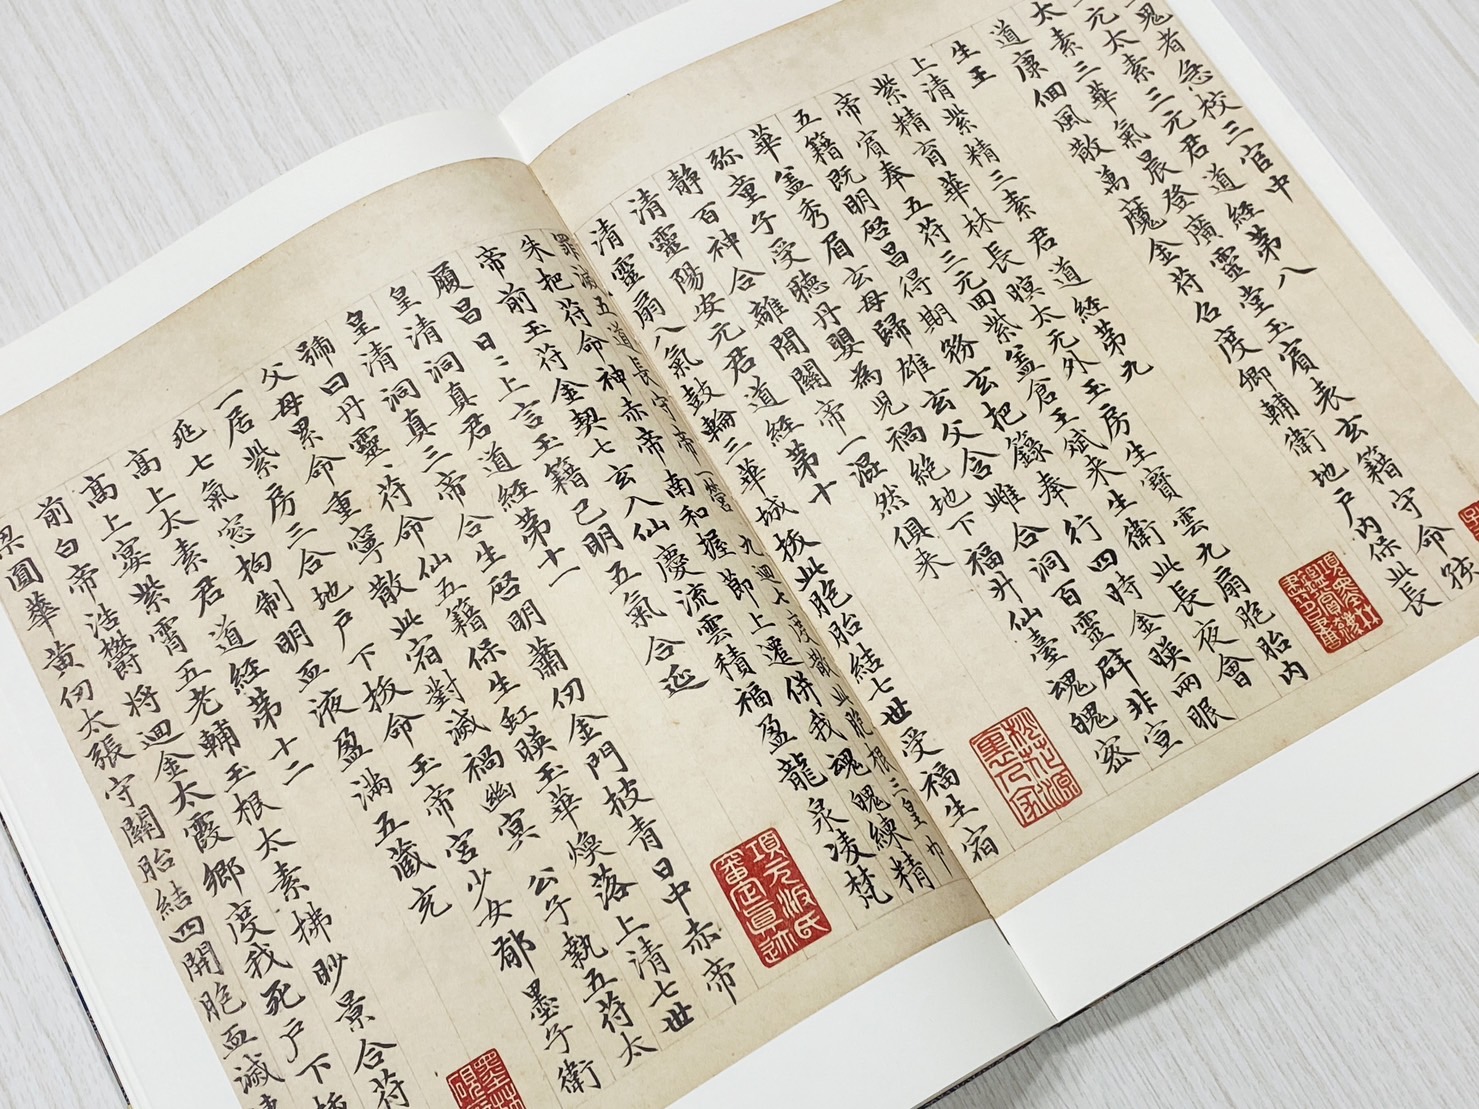 鬼者急校三官中
元太素三元君道經第八
太素三華氣晨登廣靈堂玉賓表玄籍守命
道康佪風散萬魔金符召度卿輔衛地戶內保此長
生王
上清紫精三素君道經第九
紫精育華林長暝太元外玉房生寶雲九扇胞胎內
帝賓奉五符三元回紫盖倉王斌來生衛此長夜會
五籍既明啓昌得期務玄把籙奉行四時金暎兩眠
華盖秀眉玄母歸雄玄父含雌合洞百靈辟非宣
弥童子受聽丹嬰為兇禍絕地下福升仙臺魂魄密
靜百神合離閒關帝一混然俱来
清靈陽安元君道經第十
清靈扇八氣鼓輪三華城拔此胞胎結七世受福生宿
罪滅五道長守帝一營九迴七度散此胞根三皇巾
朱把符命神赤帝南和握節上遣併我魂魄練精
帝前玉符金契七玄入仙慶流雲積福盈龍泉凌梵
履昌日〻上言玉籍已明五氣合延
皇清洞真君道經第十一
皇清洞真三帝合生啓明蕭仞金門披青日中赤帝
號曰丹靈符命仙五籍保生虹暎玉華煥落上清七世
父母累命重寧散此宿對滅禍幽冥 公子執五符太
一居紫房三合地戶下拔命玉帝宮少女郁墨子衛
延七氣窓拘制明血液盈滿五藏充
高上太素君道經第十二
高上宴紫霄五老輔玉根太素拂眇景合符
前白帝浩欝将迴金太霞鄉度我死戶下
圓華黃仞太張守關胎結四開胞血滅
項元汴氏審定真迹